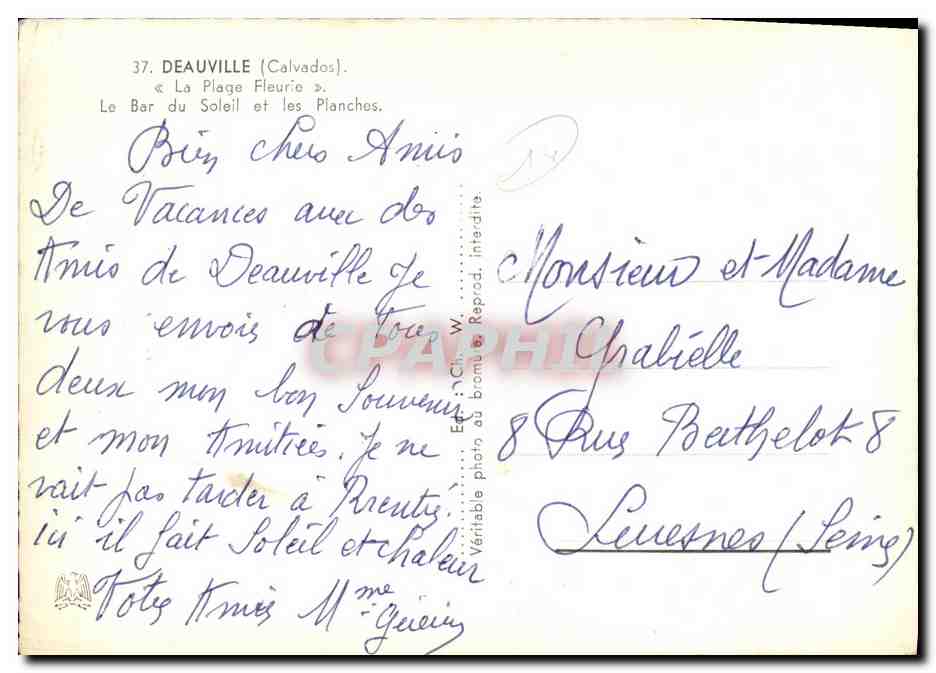 37. DEAUVILLE (Calvados).
« La Plage Fleurie ».
Le Bar du Soleil et les Planches.
Bien chers Amis
De Vacances avec des
Amis de Deauville Je
vous envois de Tous
deux mon bon Souvenir
et mon Amitiées. Je ne
vait pas tarder à Rrentre.
ici il fait Soleil et chaleur
Votre Amie Mme
Ed. : Ch. W.
Véritable photo au bromure. Reprod. interdite.
14
Monsieur et Madame
Grabielle
8 Rue Berthelot 8
(Seine)
CPAPHIL